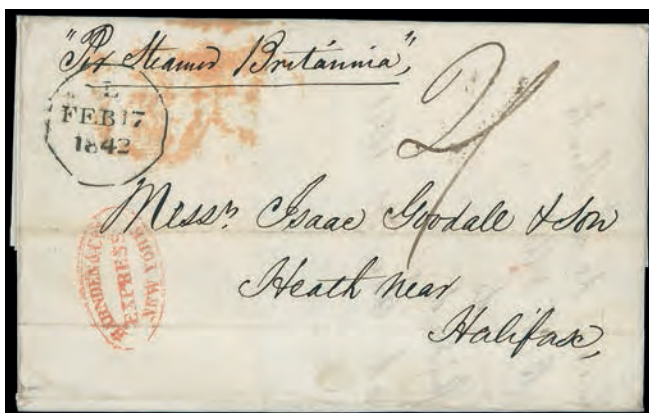 "Per Steamer Britannia",
L
FEB 17
1842
2/
Messrs. Isaac Goodale & Son
Heath near
Halifax,
HARNDEN & Co
EXPRESS
NEW YORK